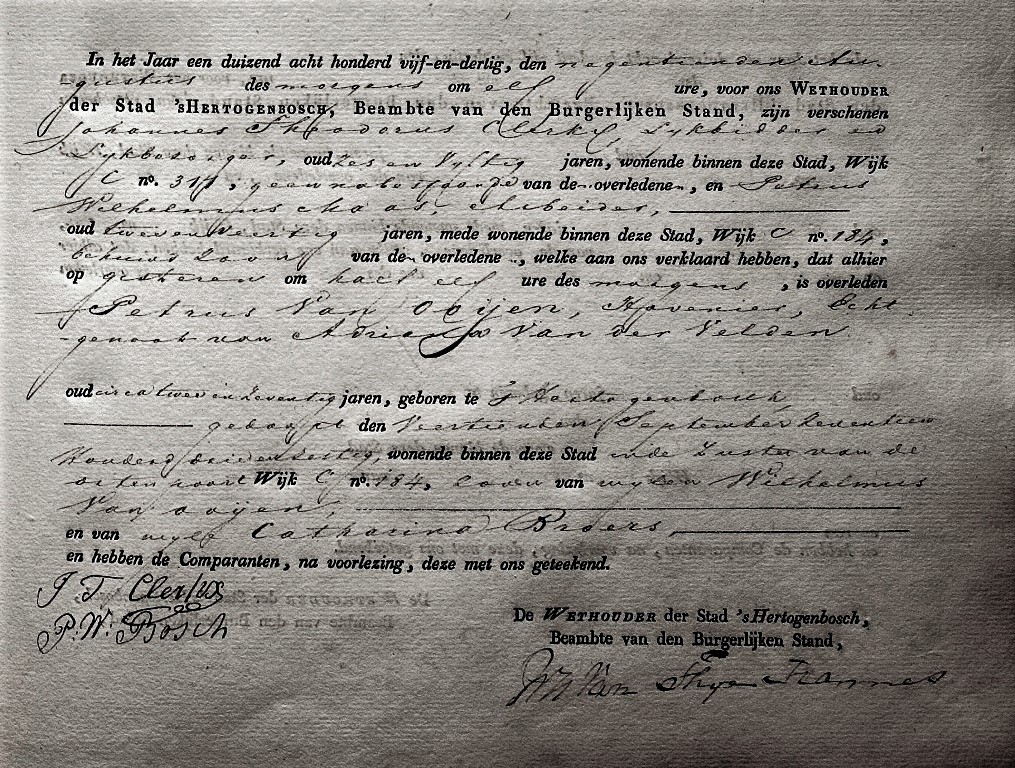 In het Jaar een duizend acht honderd vijf-en-dertig, den negentienden Au
gustus des morgens om elf ure, voor ons WETHOUDER
der Stad 'sHERTOGENBOSCH, Beambte van den Burgerlijken Stand, zijn verschenen
Johannes Theodorus Clerkx, Lykbidder en
Lykbezorger, oud zes en Vyftig jaren, wonende binnen deze Stad, Wijk
C nº. 317, geen nabestaande van de overledene, en Petrus
Wilhelmus Arbeider,
oud twee en Veertig jaren, mede wonende binnen deze Stad, Wijk C nº. 184,
behuwd Zoon van de overledene, welke aan ons verklaard hebben, dat alhier
op gisteren om half elf ure des morgens, is overleden
Petrus Van Ooijen, Hovenier, Echt-
genoot van Adriana Van der Velden
oud circa twee en Zeventig jaren, geboren te 's Hertogenbosch,
gedoopt den Veertienden September Zeventien
Honderd drie en Zestig, wonende binnen deze Stad van de
Wijk C nº. 184, Zoon van wylen Wilhelmus
Van ooijen,
en van wyle Catharina Broers,
en hebben de Comparanten, na voorlezing, deze met ons geteekend.
J. T. Clerkx
P. W. Bosch
De WETHOUDER der Stad 'sHertogenbosch,
Beambte van den Burgerlijken Stand,
Van